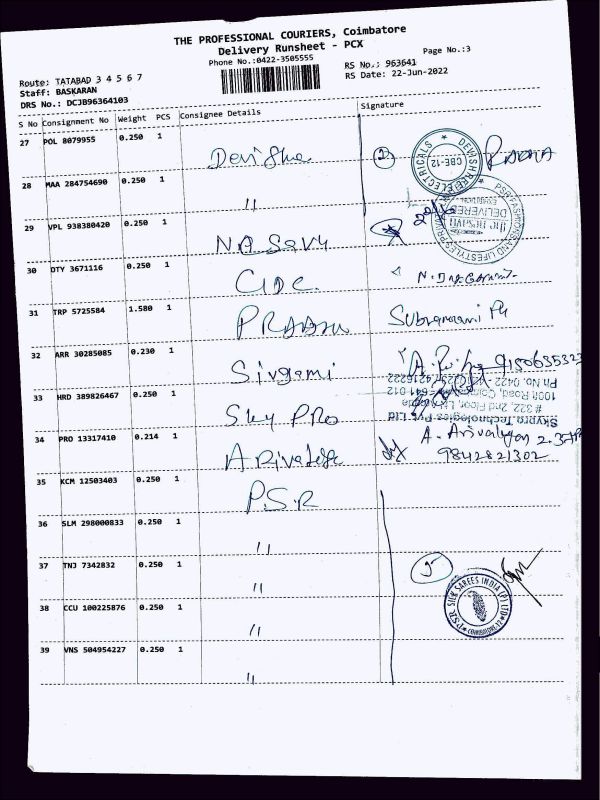 THE PROFESSIONAL COURIERS, Coimbatore
Delivery Runsheet - PCX
Phone No.:0422-3505555
Page No.:3
Route: TATABAD 3 4 5 6 7
Staff: BASKARAN
DRS No.: DCJB96364103
RS No.: 963641
RS Date: 22-Jun-2022
S No Consignment No Weight PCS Consignee Details Signature
27 POL 8079955 0.250 1 Devisha 2
DEVISHREE ELECTRICALS CBE-12
28 MAA 284754690 0.250 1 "
PSR FASHIONS AND LIFESTYLES
DELIVERED
29 VPL 938380420 0.250 1
30 DTY 3671116 0.250 1
31 TRP 5725584 1.580 1
32 ARR 30285085 0.230 1 Sivgami
33 HRD 389826467 0.250 1 Sky Pro
Skypro Technologies Pvt Ltd
# 322, 2nd Floor,
100ft Road,
Ph No. 0422 -
34 PRO 13317410 0.214 1
9842821302
35 KCM 12503403 0.250 1 P.S.R
36 SLM 298000833 0.250 1 "
37 TNJ 7342832 0.250 1 " 5
38 CCU 100225876 0.250 1 "
PSR SILK SAREES INDIA (P) LTD
COIMBATORE-12
39 VNS 504954227 0.250 1 "